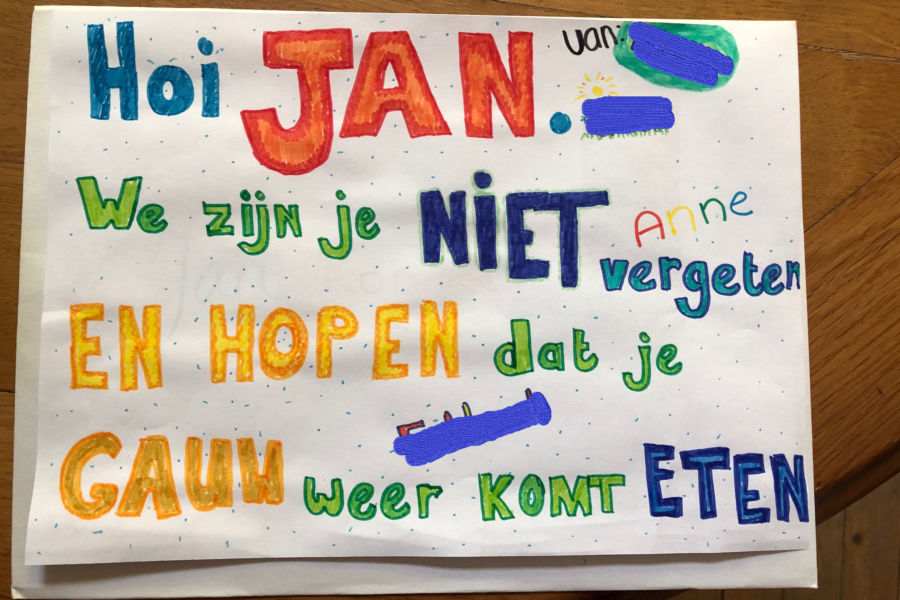 Hoi JAN.
van:
We zijn je NiET
Anne
vergeten
EN HOPEN dat je
GAUW weer KOMT ETEN